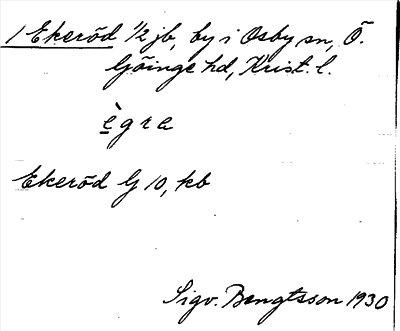 1 Ekeröd 1/2 jb, by i Osby sn, Ö.
Göinge hd, Krist. l.
è g r a
Ekeröd G 10, kb
Sigv. Bengtsson 1930